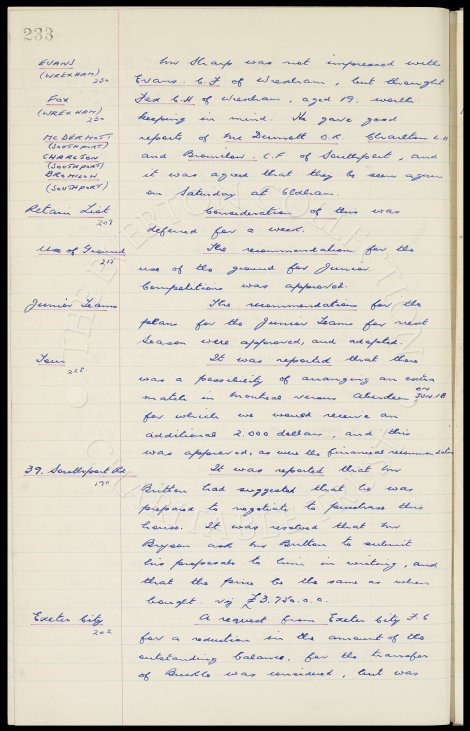 233
EVANS
(WREXHAM)
230
FOX
(WREXHAM)
230
McDERMOTT
(SOUTHPORT)
CHARLTON
(SOUTHPORT)
BROMILOW
(SOUTHPORT)
Mr Sharp was not impressed with
Evans. C.F. of Wrexham, but thought
Fox C.H. of Wrexham, aged 19, worth
keeping in mind. He gave good
reports of McDermott O.R. Charlton C.H
and Bromilow. C.F of Southport, and
it was agreed that they be seen again
on Saturday at Oldham.
Retain List
207
Consideration of this was
deferred for a week.
Use of Ground
215
The recommendation for the
use of the ground for Junior
Competitions was approved.
Junior Teams
The recommendations for the
plans for the Junior Teams for next
season were approved, and adopted.
Tour
228
It was reported that there
was a possibility of arranging an extra
match in Montreal versus Aberdeen, ON JUN. 18
for which we would receive an
additional 2.000 dollars, and this
was approved, as were the financial recommendations
39. Southport Rd.
190
It was reported that Mr
Britton had suggested that he was
prepared to negotiate to purchase this
house. It was resolved that Mr
Bryson ask Mr Britton to submit
his proposals to him in writing, and
that the price be the same as when
bought. viz £3.750.0.0.
Exeter City
202
A request from Exeter City F.C
for a reduction in the amount of the
outstanding balance, for the transfer
of Buckle was considered, but was
THE EVERTON COLLECTION